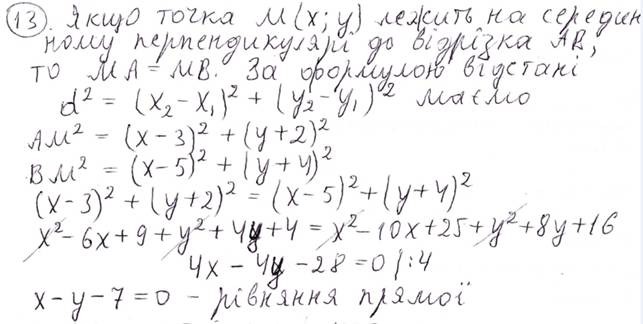 13. Якщо точка M(x; y) лежить на середин
ному перпендикулярі до відрізка AB,
то MA = MB. За формулою відстані
d² = (x₂ - x₁)² + (y₂ - y₁)² маємо
AM² = (x - 3)² + (y + 2)²
BM² = (x - 5)² + (y + 4)²
(x - 3)² + (y + 2)² = (x - 5)² + (y + 4)²
x² - 6x + 9 + y² + 4y + 4 = x² - 10x + 25 + y² + 8y + 16
4x - 4y - 28 = 0 |:4
x - y - 7 = 0 - рівняння прямої